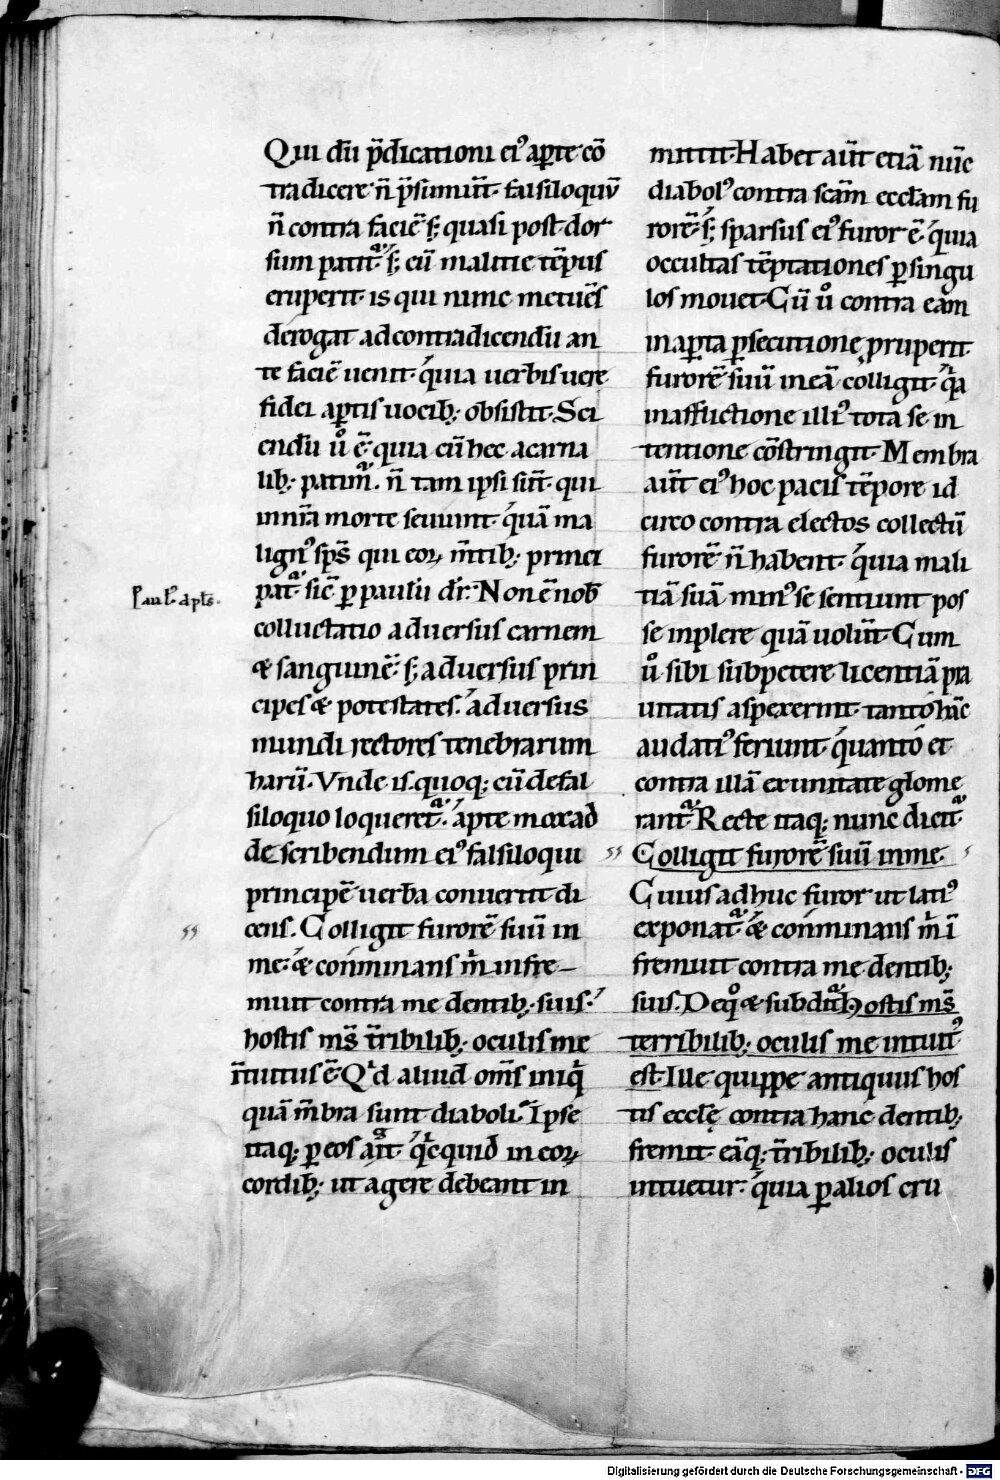 Qui dū p̄dicationi ei᾽ aꝑte cō
tradicere n̄ p̄sumūt. falsiloquū
n̄ contra faciē s; quasi post dor
sum patit᷑. s; cū malitie tēpus
eruperit. is qui nunc metuēs
derogat ad contradicendū an
te faciē uenit. quia uerbis uere
fidei aꝑtis uocib; obsistit. Sci
endū ů ē. quia cū hec a carna
lib; patim᷑. n̄ tam ipsi sūt qui
in nr̄a morte seuiunt. quā ma
lign᾽ sp̄s qui eoꝝ m̄tib; princi
pat᷑. sic̄ ꝑ paulū dr̄. Non ē nob̄
colluctatio aduersus carnem
& sanguinē. s; aduersus prin
cipes & potestates. aduersus
mundi rectores tenebrarum
harū. Vnde is quoq; cū de fal
siloquo loqueret᷑. aꝑte mox ad
describendum ei᾽ falsiloqui
principē uerba conuertit di
cens. Colligit furorē suū in
me. & conminans m̍ infre
muit contra me dentib; suis.
hostis m̄s t̄ribilib; oculis me
ītuitus ē. Qͥd aliud om̄s iniq̍
quā m̄bra sunt diaboli. Ipse
itaq; ꝑ eos aḡit. qͥcquid in eoꝝ
cordib; ut agere debeant in
Paul᾽ ap̄ls.
mittit. Habet aūt etiā nūc
diabol᾽ contra scām eccl̄am fu
rorē. s; sparsus ei᾽ furor ē. quia
occultas tēptationes ꝑ singu
los mouet. Cū ů contra eam
in aꝑta ꝑsecutione pruperit
furorē suū in eā colligit. q̍a
in afflictione illi᾽ tota se in
tentione cōstringit. Membra
aūt ei᾽ hoc pacis tēpore id
circo contra electos collectū
furorē n̄ habent. quia mali
tiā suā min᾽ se sentiunt pos
se inplere quā uolūt. Cum
ů sibi subpetere licentiā pra
uitatis aspexerint. tanto hāc
audati᾽ feriunt. quanto et
contra illā ex unitate glome
rant᷑. Recte itaq; nunc dicit᷑.
Colligit furorē suū in me.
Cuius adhuc furor ut lati᾽
exponat᷑. & conminans m̍ ī
fremuit contra me dentib;
suis. De qͦ & subdit᷑. Hostis m̄s
terribilib; oculis me intuit᾽
est. Ille quippe antiquus hos
tis eccl̄ę contra hanc dentib;
fremit. eāq; t̄ribilib; oculis
intuetur. quia ꝑ alios cru
Digitalisierung gefördert durch die Deutsche Forschungsgemeinschaft - DFG